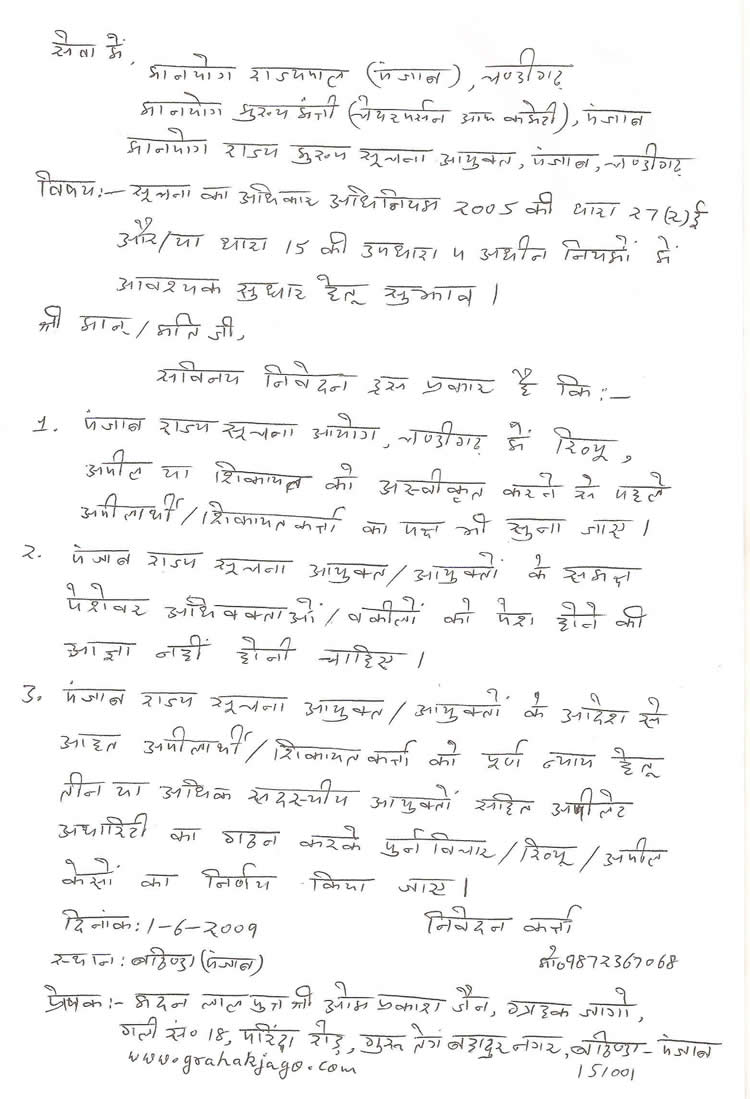 सेवा में,
मानयोग राज्यपाल (पंजाब), चण्डीगढ़
मानयोग मुख्य मंत्री (चेयरपर्सन आफ कमेटी), पंजाब
मानयोग राज्य मुख्य सूचना आयुक्त, पंजाब, चण्डीगढ़
विषय:- सूचना का अधिकार अधिनियम २००5 की धारा २7(२)ई
और/या धारा 15 की उपधारा 4 अधीन नियमों में
आवश्यक सुधार हेतू सुझाव।
श्री मान्/मति जी,
सविनय निवेदन इस प्रकार है कि:-
1. पंजाब राज्य सूचना आयोग, चण्डीगढ़ में रिव्यू,
अपील या शिकायत को अस्वीकृत करने से पहले
अपीलार्थी/शिकायतकर्त्ता का पक्ष भी सुना जाए।
२. पंजाब राज्य सूचना आयुक्त/आयुक्तों के समक्ष
पेशेवर अधिवक्ताओं/वकीलों को पेश होने की
आज्ञा नहीं होनी चाहिए।
3. पंजाब राज्य सूचना आयुक्त/आयुक्तों के आदेश से
आहत अपीलार्थी/शिकायतकर्त्ता को पूर्ण न्याय हेतू
तीन या अधिक सदस्यीय आयुक्तों सहित अपीलेट
अथारिटी का गठन करके पुर्न विचार/रिव्यू/अपील
केसों का निर्णय किया जाए।
दिनांक: 1-6-२००9 निवेदन कर्त्ता
स्थान: बठिण्डा (पंजाब) मो०9872367068
प्रेषक:- मदन लाल पुत्र श्री ओम प्रकाश जैन, ग्राहक जागो,
गली सं० 18, परिंदा रोड़, गुरू तेग बहादुर नगर, बठिण्डा - पंजाब
www.grahakjago.com 151001